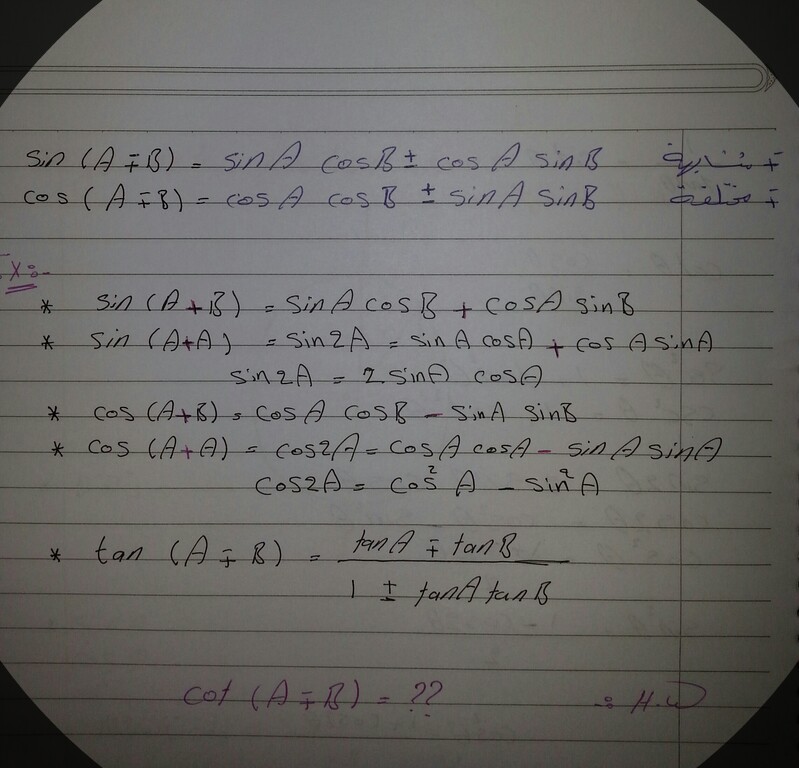 sin (A ∓ B) = sin A cos B ± cos A sin B ∓ متشابهة
cos (A ∓ B) = cos A cos B ± sin A sin B ∓ مختلفة
Ex:-
* sin (A + B) = sin A cos B + cos A sin B
* sin (A+A) = sin 2A = sin A cos A + cos A sin A
sin 2A = 2 sin A cos A
* cos (A+B) = cos A cos B - sin A sin B
* cos (A+A) = cos 2A = cos A cos A - sin A sin A
cos 2A = cos² A - sin² A
* tan (A ∓ B) = tan A ∓ tan B / 1 ± tan A tan B
cot (A ∓ B) = ?? :- H.W